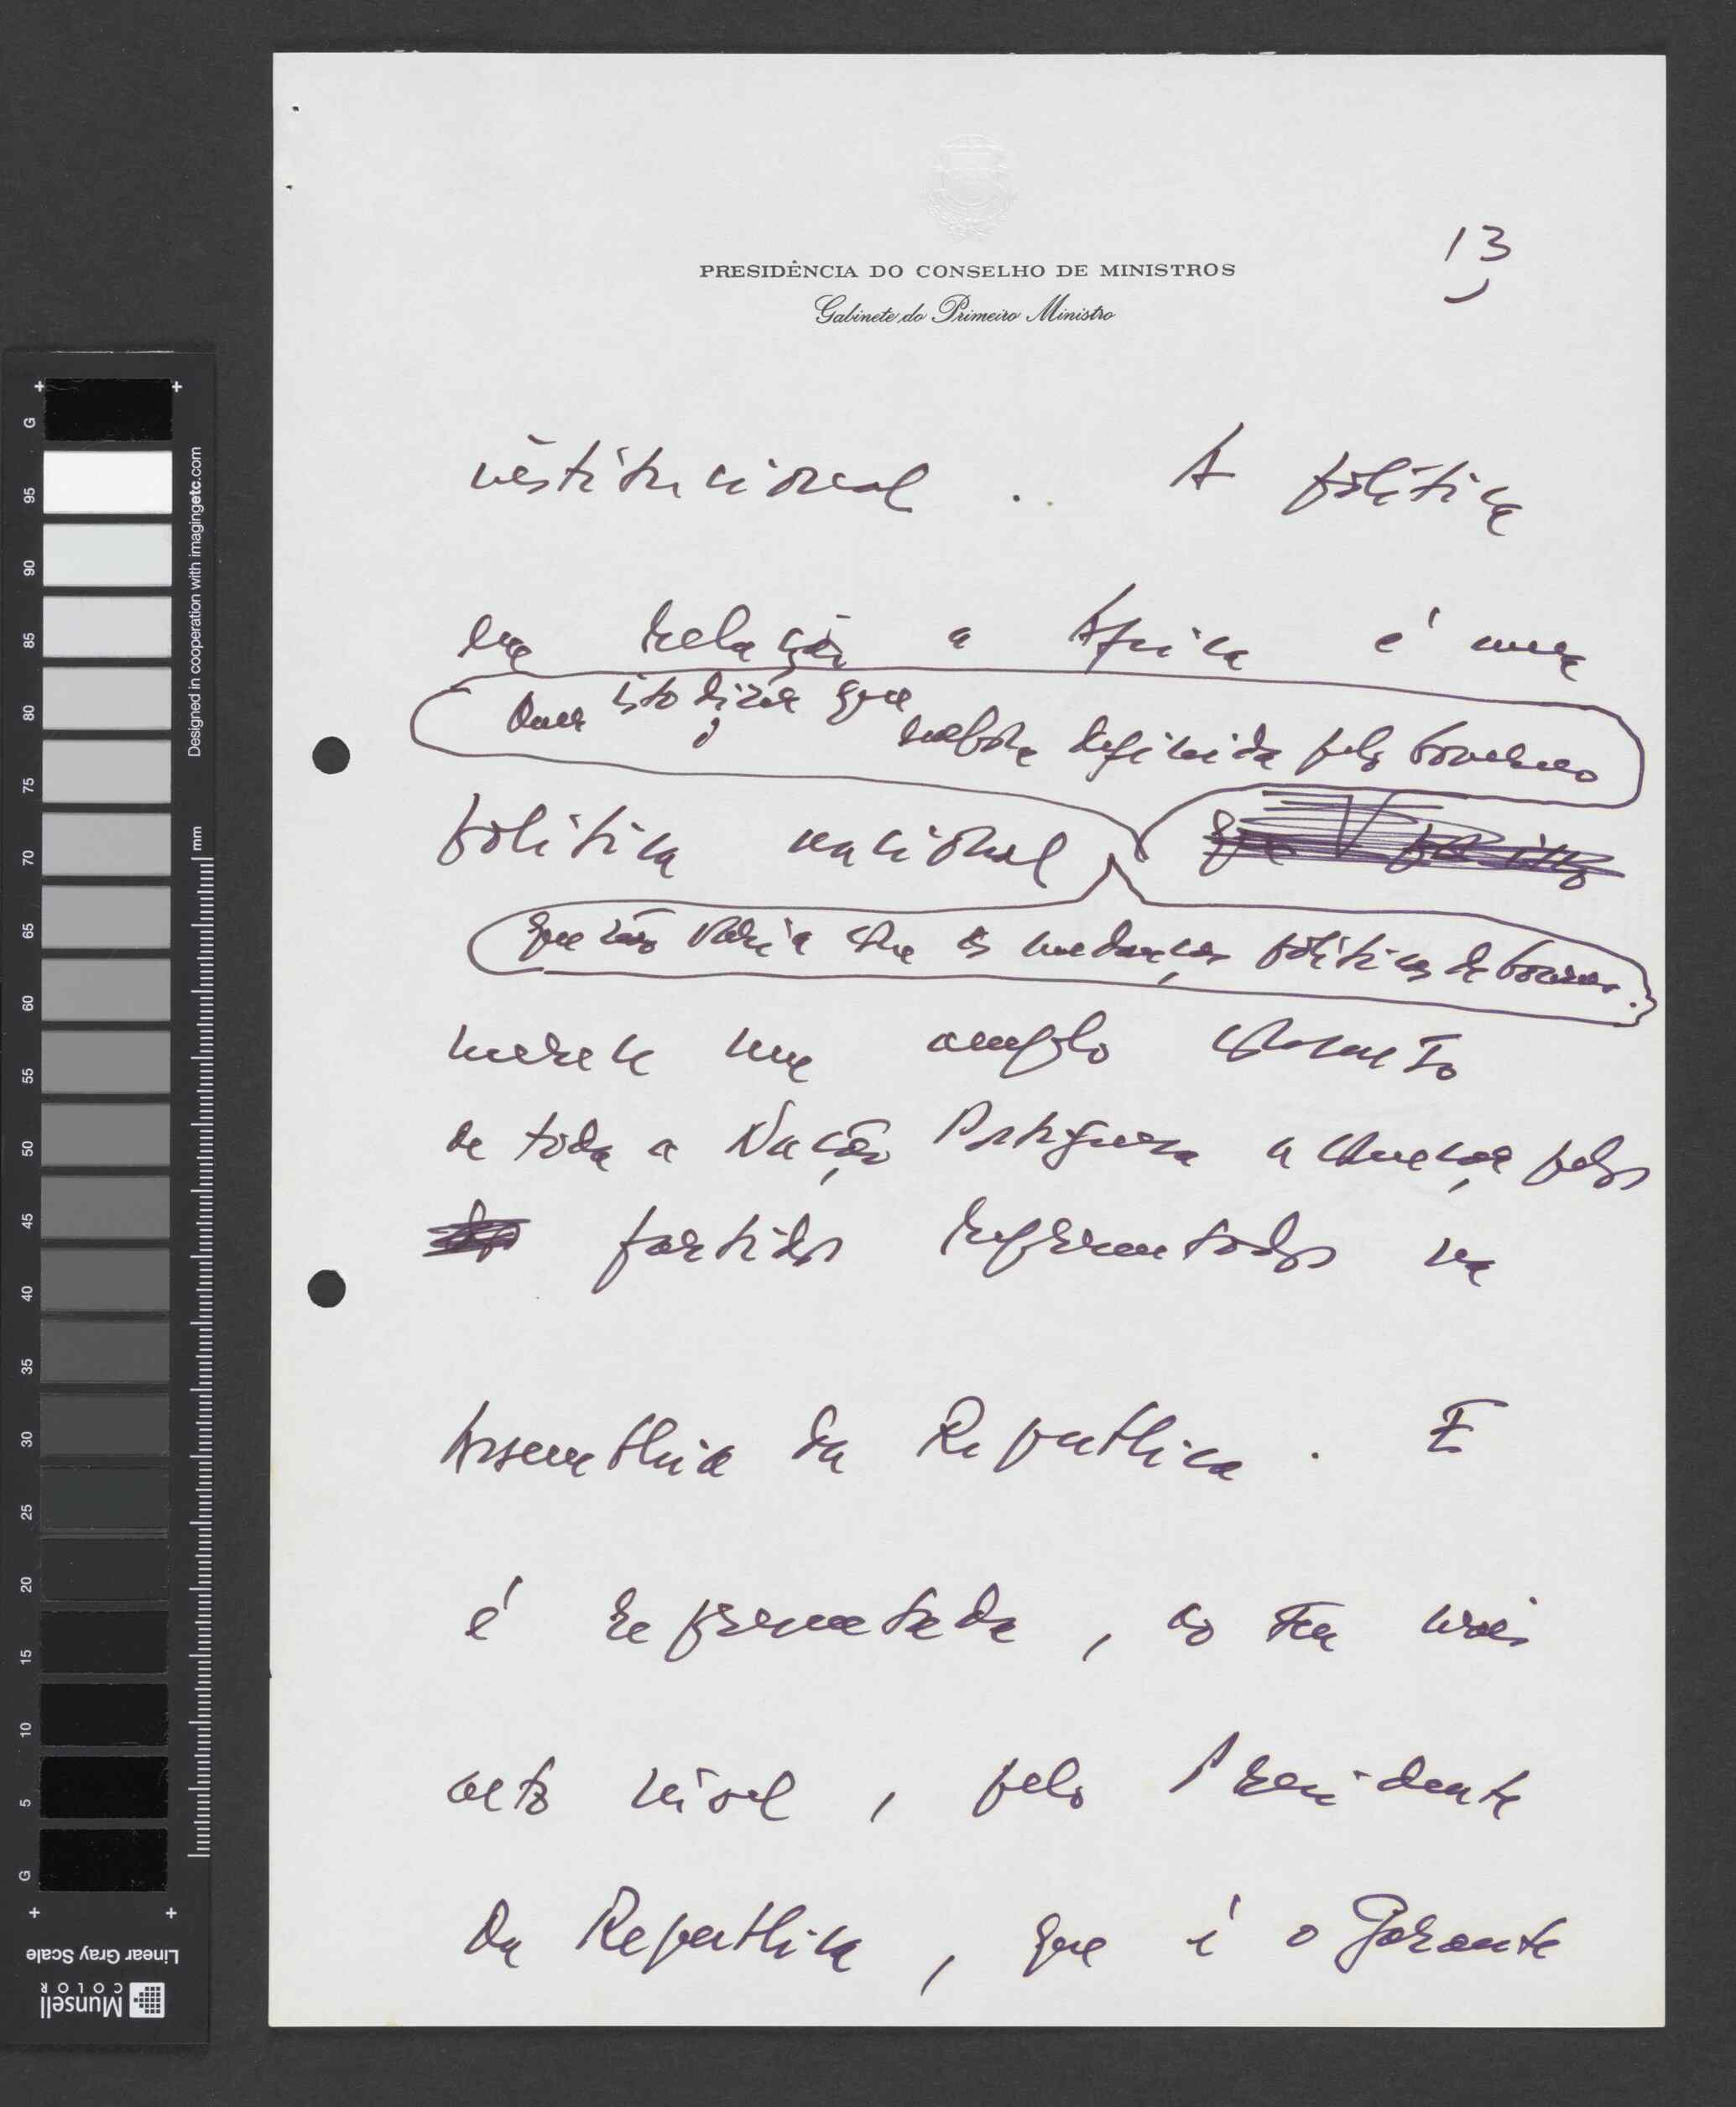 PRESIDÊNCIA DO CONSELHO DE MINISTROS
Gabinete do Primeiro Ministro
13
institucional. A política
em relação a Africa é uma
Quer isto dizer que embora definida pelo Governo
política nacional
que não varia com as mudanças políticas de Governo.
merece um amplo consenso
de toda a Nação Portuguesa a começar pelos
partidos representados na
Assembleia da Republica. E
é representada, ao seu mais
alto nível, pelo Presidente
da Republica, que é o garante
G
95
90
85
80
75
70
65
60
55
50
45
40
35
30
25
20
15
10
5
G
mm
Designed in cooperation with imagingetc.com
Linear Gray Scale
Munsell
COLOR